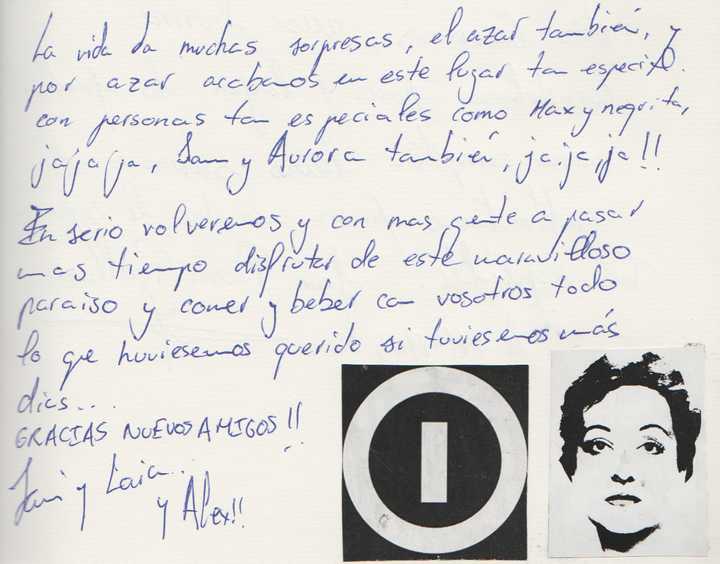 La vida da muchas sorpresas, el azar también, y
por azar acabamos en este lugar tan especial.
con personas tan especiales como Max y negrita,
jajaja, Dani y Aurora también, ja.ja,ja!!
En serio volveremos y con mas gente a pasar
mas tiempo disfrutar de este maravilloso
paraiso y comer y beber con vosotros todo
lo que huviesemos querido si tuviesemos más
dias...
GRACIAS NUEVOS AMIGOS!!
y Laia...
y Alex!!